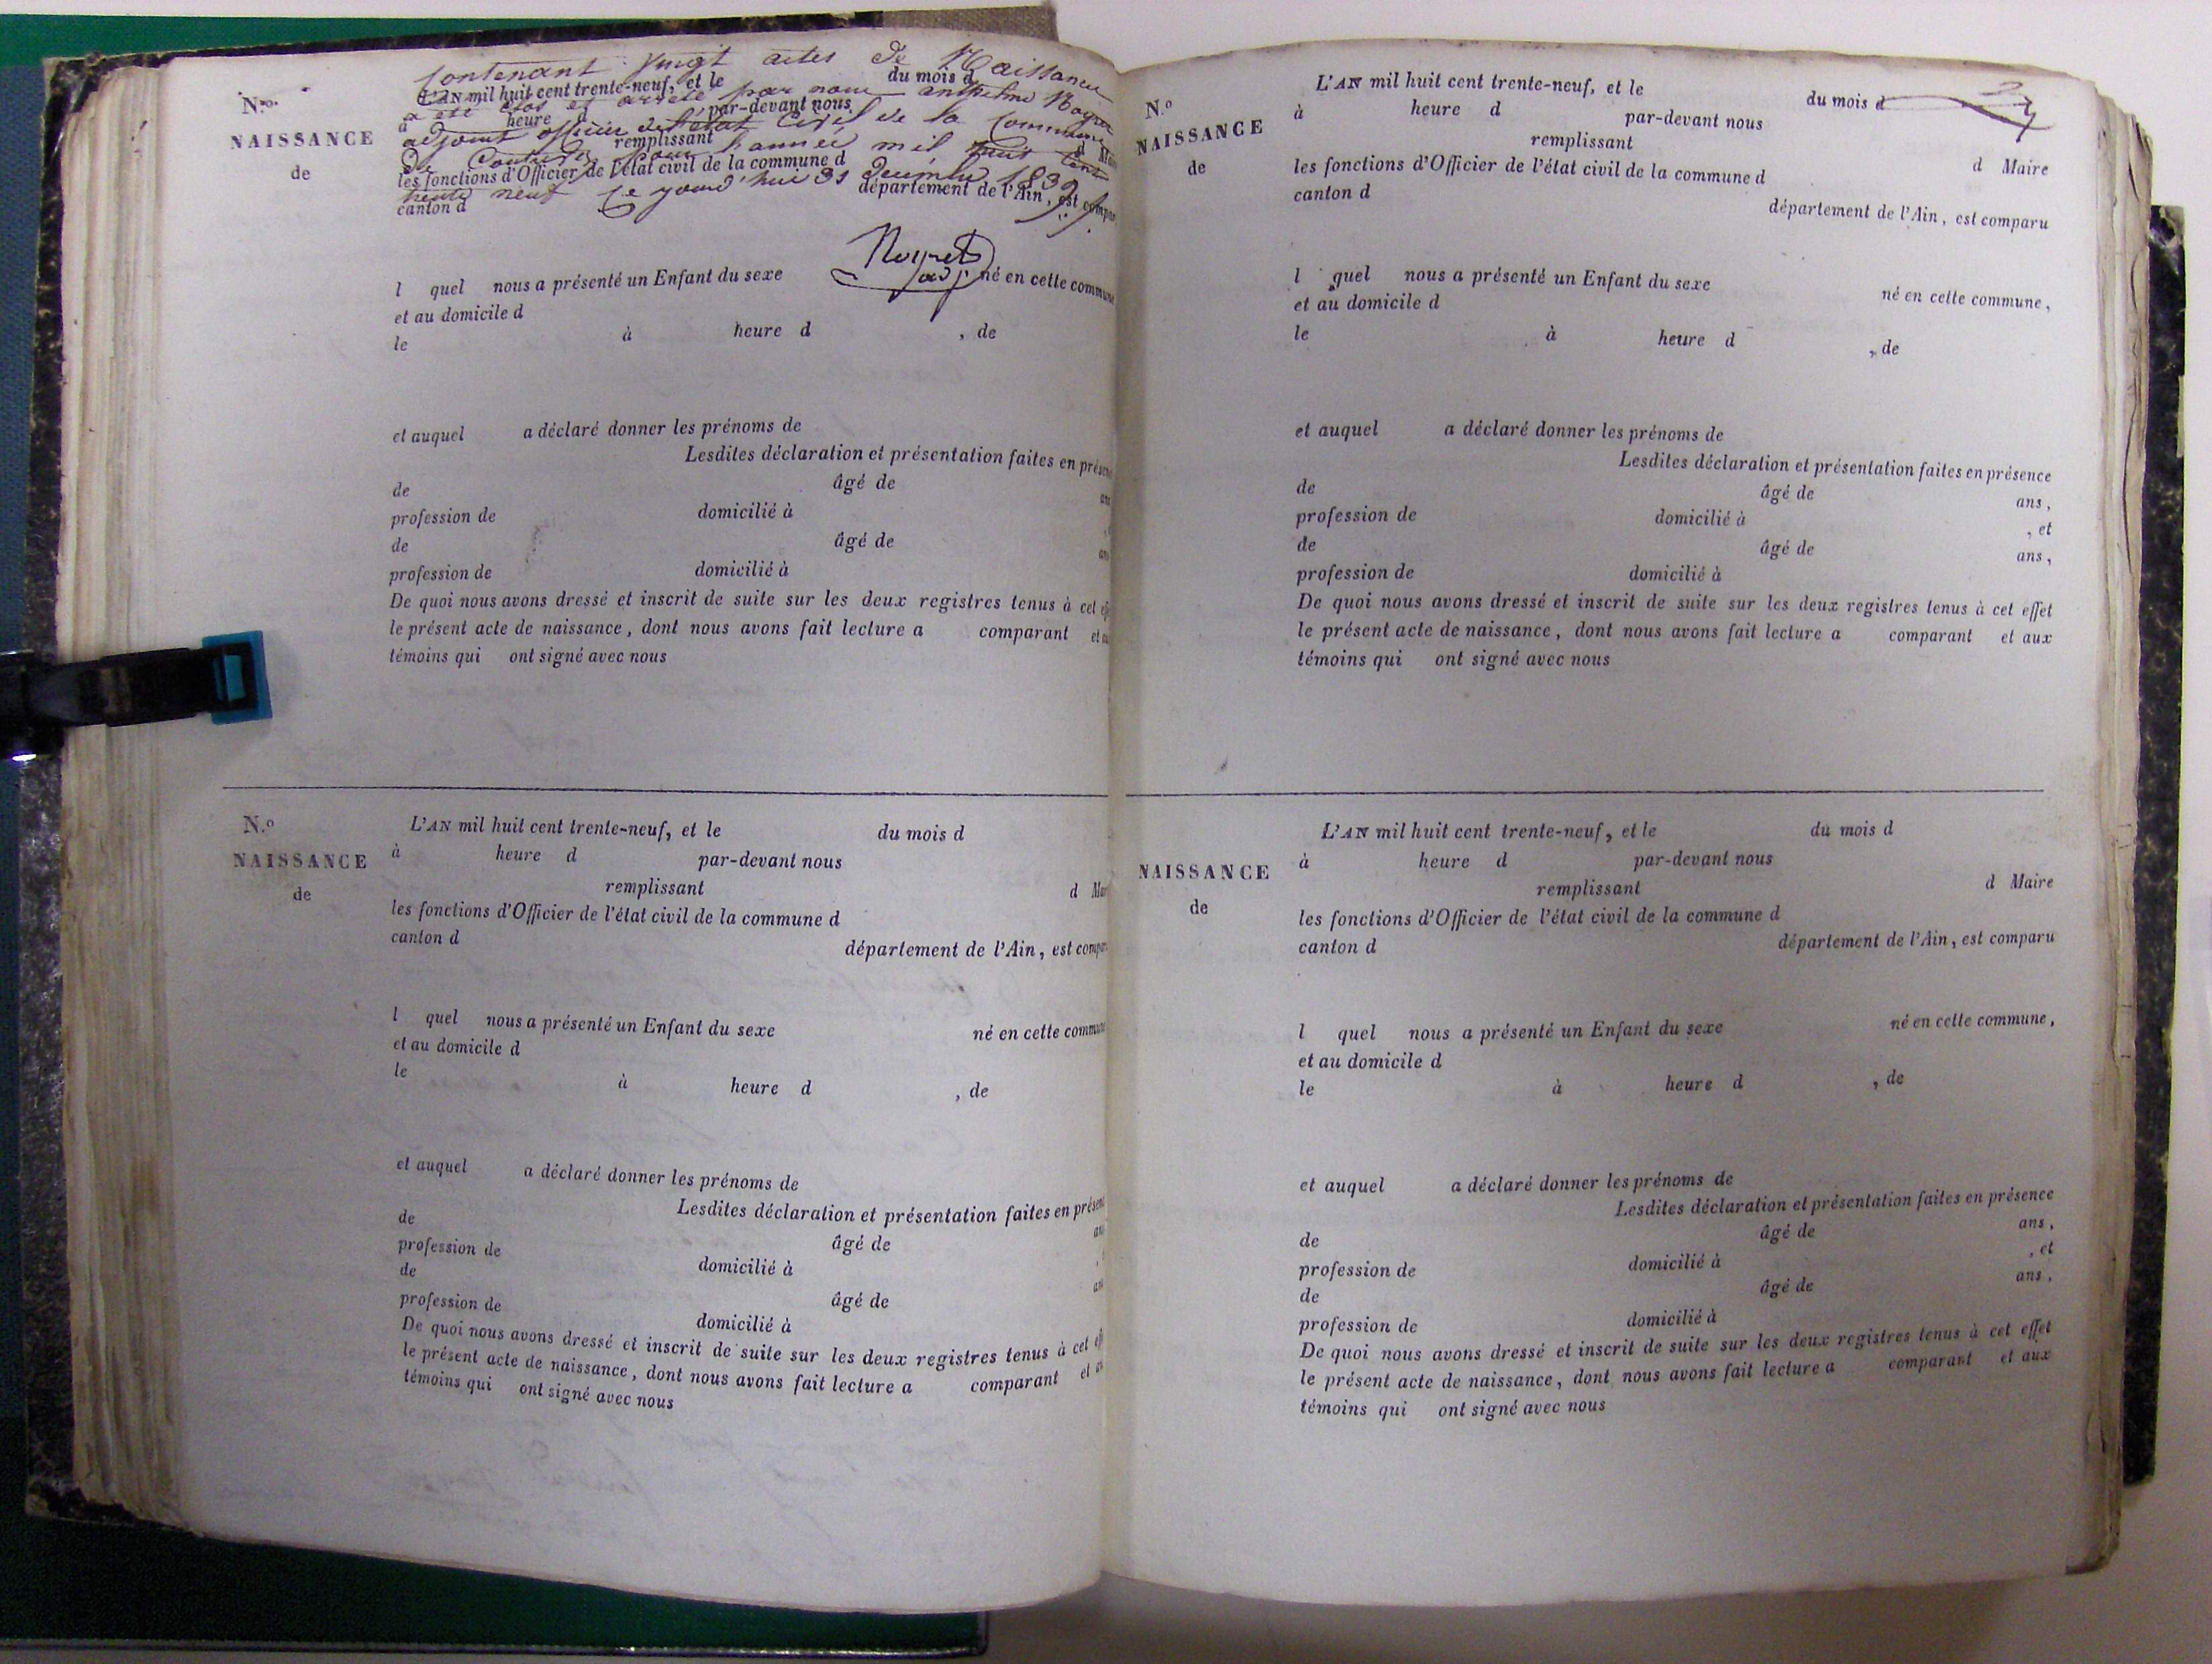 Contenant vingt actes de Naissance
a été clos et arrêté par nous anthelme
adjoint officier de l'état Civil de la Commune
de pour l'année mil huit cent
trente neuf Ce jourd'hui 31 Décembre 1839
Noyret
adj.
N.o
NAISSANCE
de
L'AN mil huit cent trente-neuf, et le du mois d
à heure d par-devant nous
remplissant d Mai
les fonctions d'Officier de l'état civil de la commune d
canton d département de l'Ain, est compar
l quel nous a présenté un Enfant du sexe né en cette commune
et au domicile d
le à heure d , de
et auquel a déclaré donner les prénoms de
Lesdites déclaration et présentation faites en présen
de âgé de ans
profession de domicilié à
de âgé de ans
profession de domicilié à
De quoi nous avons dressé et inscrit de suite sur les deux registres tenus à cet eff
le présent acte de naissance, dont nous avons fait lecture a comparant et au
témoins qui ont signé avec nous
N.o
NAISSANCE
de
L'AN mil huit cent trente-neuf, et le du mois d
à heure d par-devant nous
remplissant d Mai
les fonctions d'Officier de l'état civil de la commune d
canton d département de l'Ain, est compar
l quel nous a présenté un Enfant du sexe né en cette commune
et au domicile d
le à heure d , de
et auquel a déclaré donner les prénoms de
Lesdites déclaration et présentation faites en présen
de âgé de ans
profession de domicilié à
de âgé de ans
profession de domicilié à
De quoi nous avons dressé et inscrit de suite sur les deux registres tenus à cet eff
le présent acte de naissance, dont nous avons fait lecture a comparant et au
témoins qui ont signé avec nous
N.o
NAISSANCE
de
L'AN mil huit cent trente-neuf, et le du mois d
à heure d par-devant nous
remplissant d Maire
les fonctions d'Officier de l'état civil de la commune d
canton d département de l'Ain, est comparu
l quel nous a présenté un Enfant du sexe né en cette commune,
et au domicile d
le à heure d , de
et auquel a déclaré donner les prénoms de
Lesdites déclaration et présentation faites en présence
de âgé de ans,
profession de domicilié à , et
de âgé de ans,
profession de domicilié à
De quoi nous avons dressé et inscrit de suite sur les deux registres tenus à cet effet
le présent acte de naissance, dont nous avons fait lecture a comparant et aux
témoins qui ont signé avec nous
NAISSANCE
de
L'AN mil huit cent trente-neuf, et le du mois d
à heure d par-devant nous
remplissant d Maire
les fonctions d'Officier de l'état civil de la commune d
canton d département de l'Ain, est comparu
l quel nous a présenté un Enfant du sexe né en cette commune,
et au domicile d
le à heure d , de
et auquel a déclaré donner les prénoms de
Lesdites déclaration et présentation faites en présence
de âgé de ans,
profession de domicilié à , et
de âgé de ans,
profession de domicilié à
De quoi nous avons dressé et inscrit de suite sur les deux registres tenus à cet effet
le présent acte de naissance, dont nous avons fait lecture a comparant et aux
témoins qui ont signé avec nous